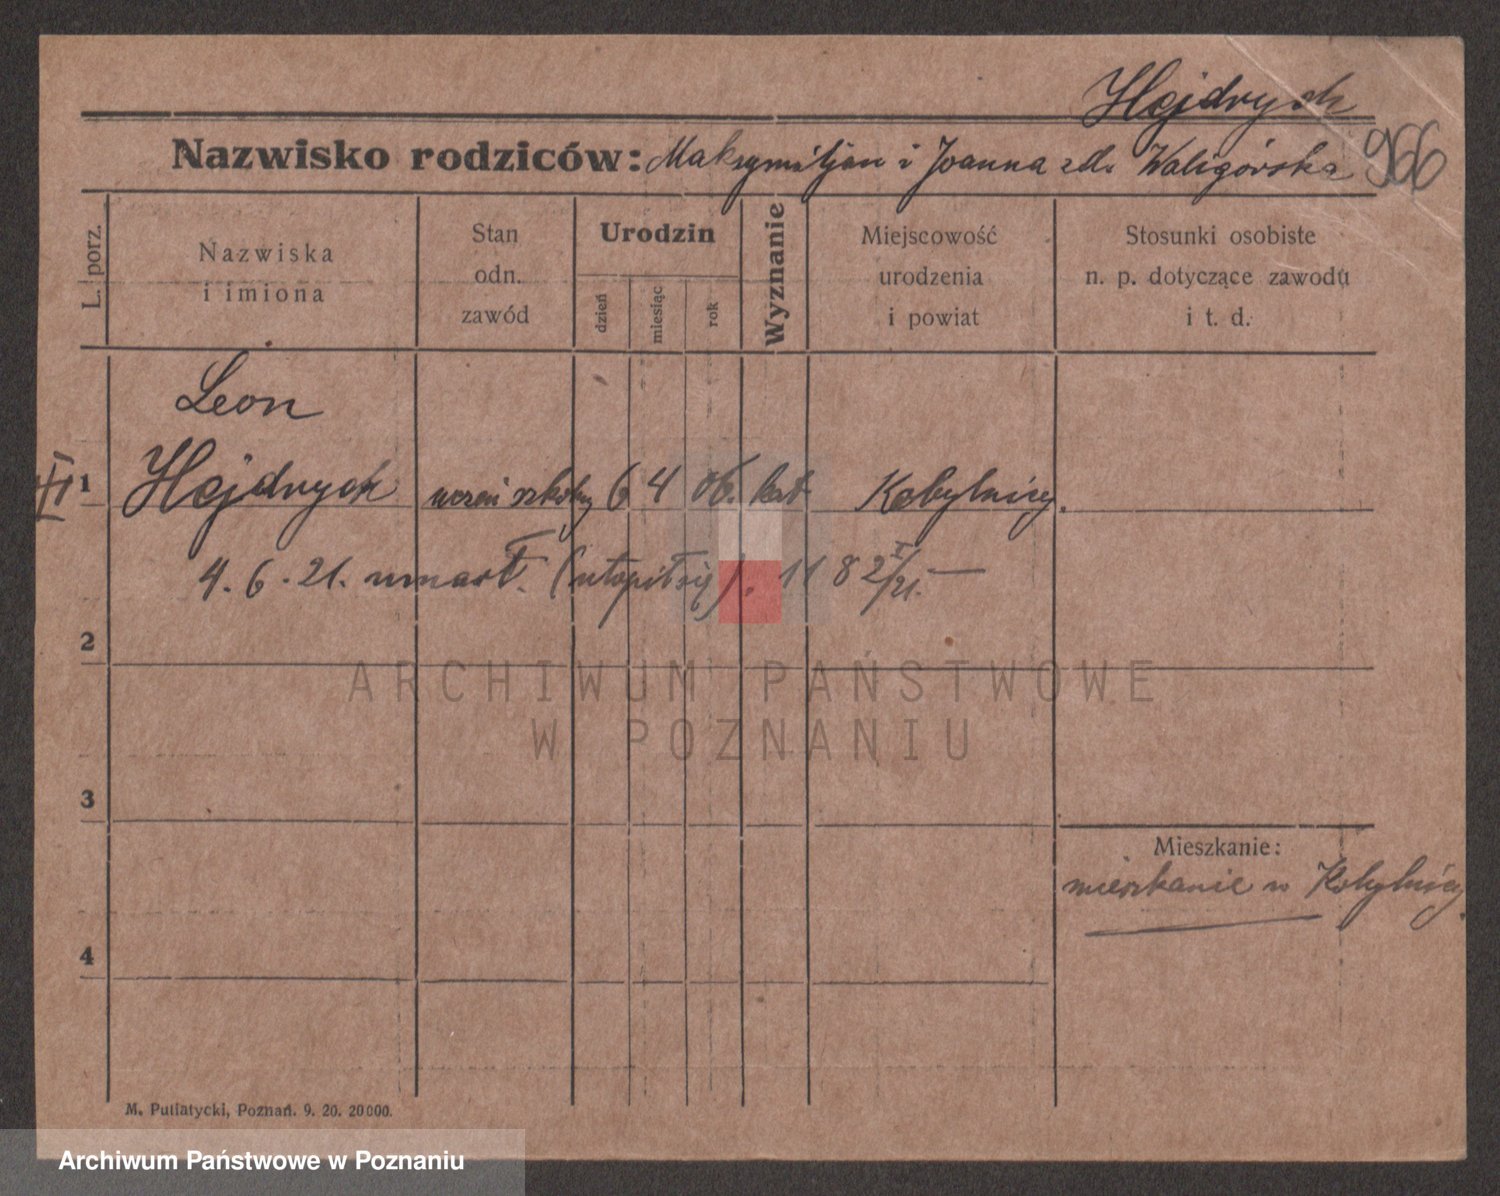 Hejdrych
Nazwisko rodziców: Maksymiljan i Joanna zd. Waligórska 966
L. porz.
Nazwiska i imiona
Stan odn. zawód
Urodzin
dzień
miesiąc
rok
Wyznanie
Miejscowość urodzenia i powiat
Stosunki osobiste n. p. dotyczące zawodu i t. d.
Leon
1 Hejdrych uczeń szkolny 6 4 06. kat. Kobylnicy.
4. 6. 21. umarł. (utopił się). 1182/21.
2
ARCHIWUM PAŃSTWOWE
W POZNANIU
3
Mieszkanie:
mieszkanie w Kobylnicy.
4
M. Putiatycki, Poznań. 9. 20. 20000.
Archiwum Państwowe w Poznaniu